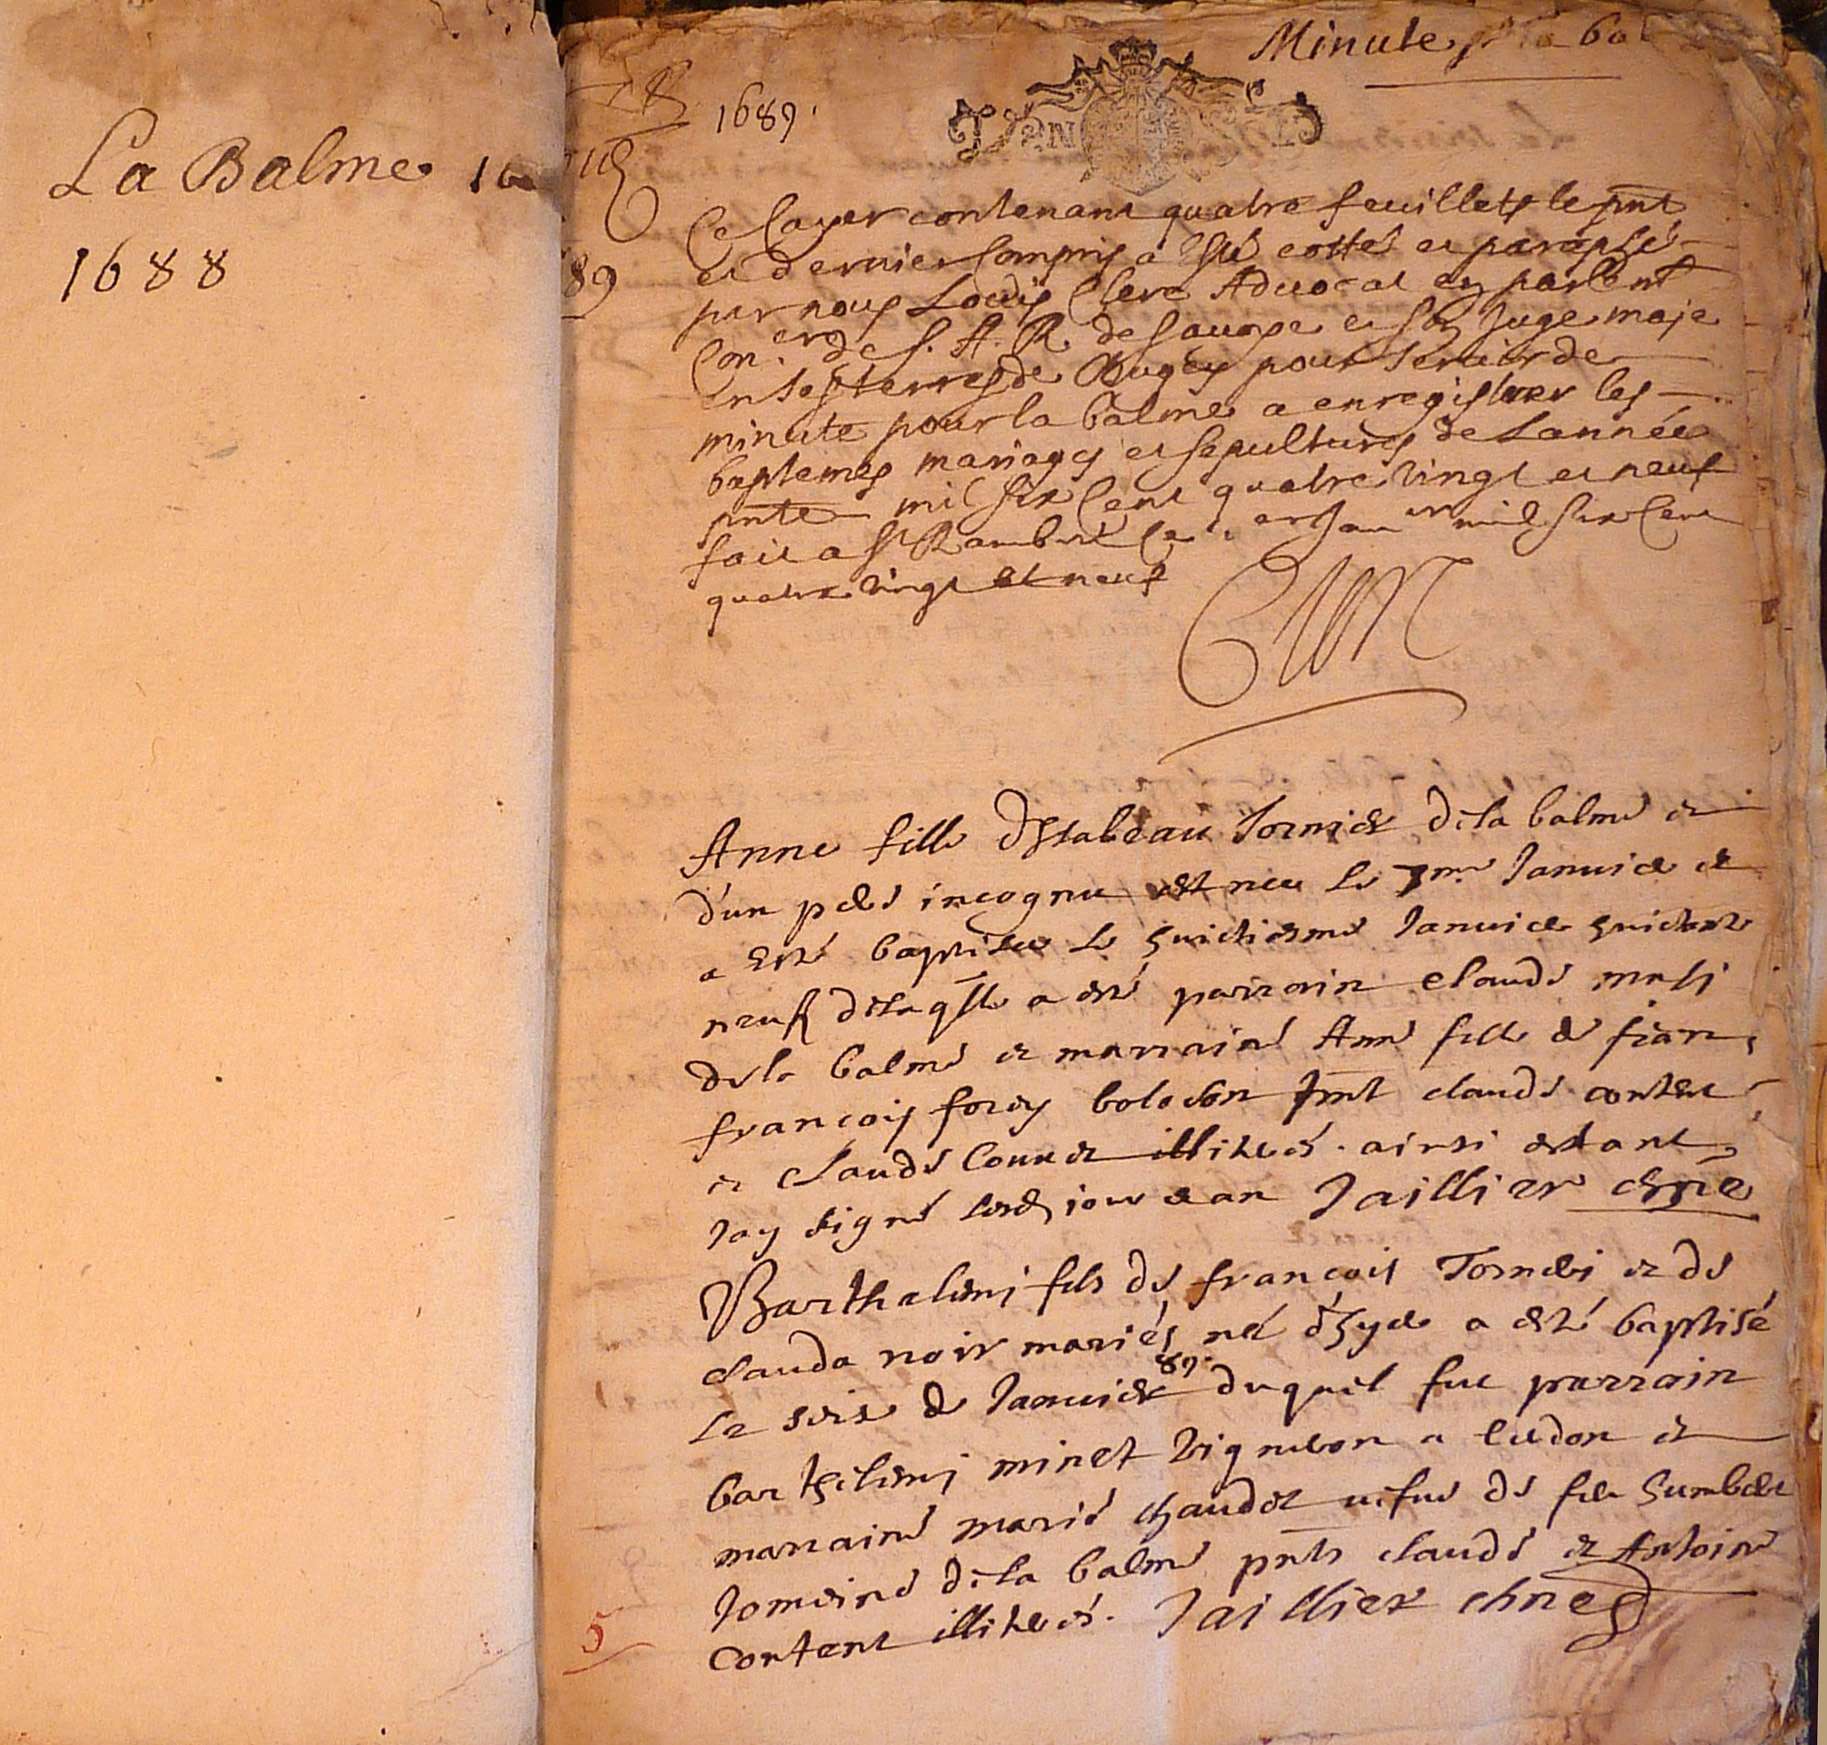 La Balme
1688
Minute
1689.
89
Ce Cayer contenant quatre feuillets le pnt
et dernier Compris a esté cotté et paraphé
par nous Louis Clerc Advocat en parlent
Con.er de S. A. R. de Savoye et son Juge maje
en ses terres de Bugey pour servir de
minute pour la balme a enregistrer les
baptemes mariages et sepultures de Lannée
pnte mil six Cent quatre vingt et neuf
fait a St Rambert Ce Jan er mil six Cent
quatre vingt et neuf
Anne fille dysabeau de la balme et
d'un pere incognu est nee le 7me Janvier et
a esté baptisee le huictiesme Janvier huictante
neuf de laqlle a esté parrain claude
de la balme et marraine Anne fille de
francois bolodon pnt claude content
et claude illiterés. ainsi estant
Jay signé lesd jour et an Jaillier
Barthelemi fils de francois et de
clauda noir mariés né dhyer a esté baptisé
le seize de Janvier 89. duquel fut parrain
barthelemi minet vigneron a et
marraine marie chaudet vefve de feu humbert
de la balme pnts claude et Antoine
Content illiterés. Jaillier
5